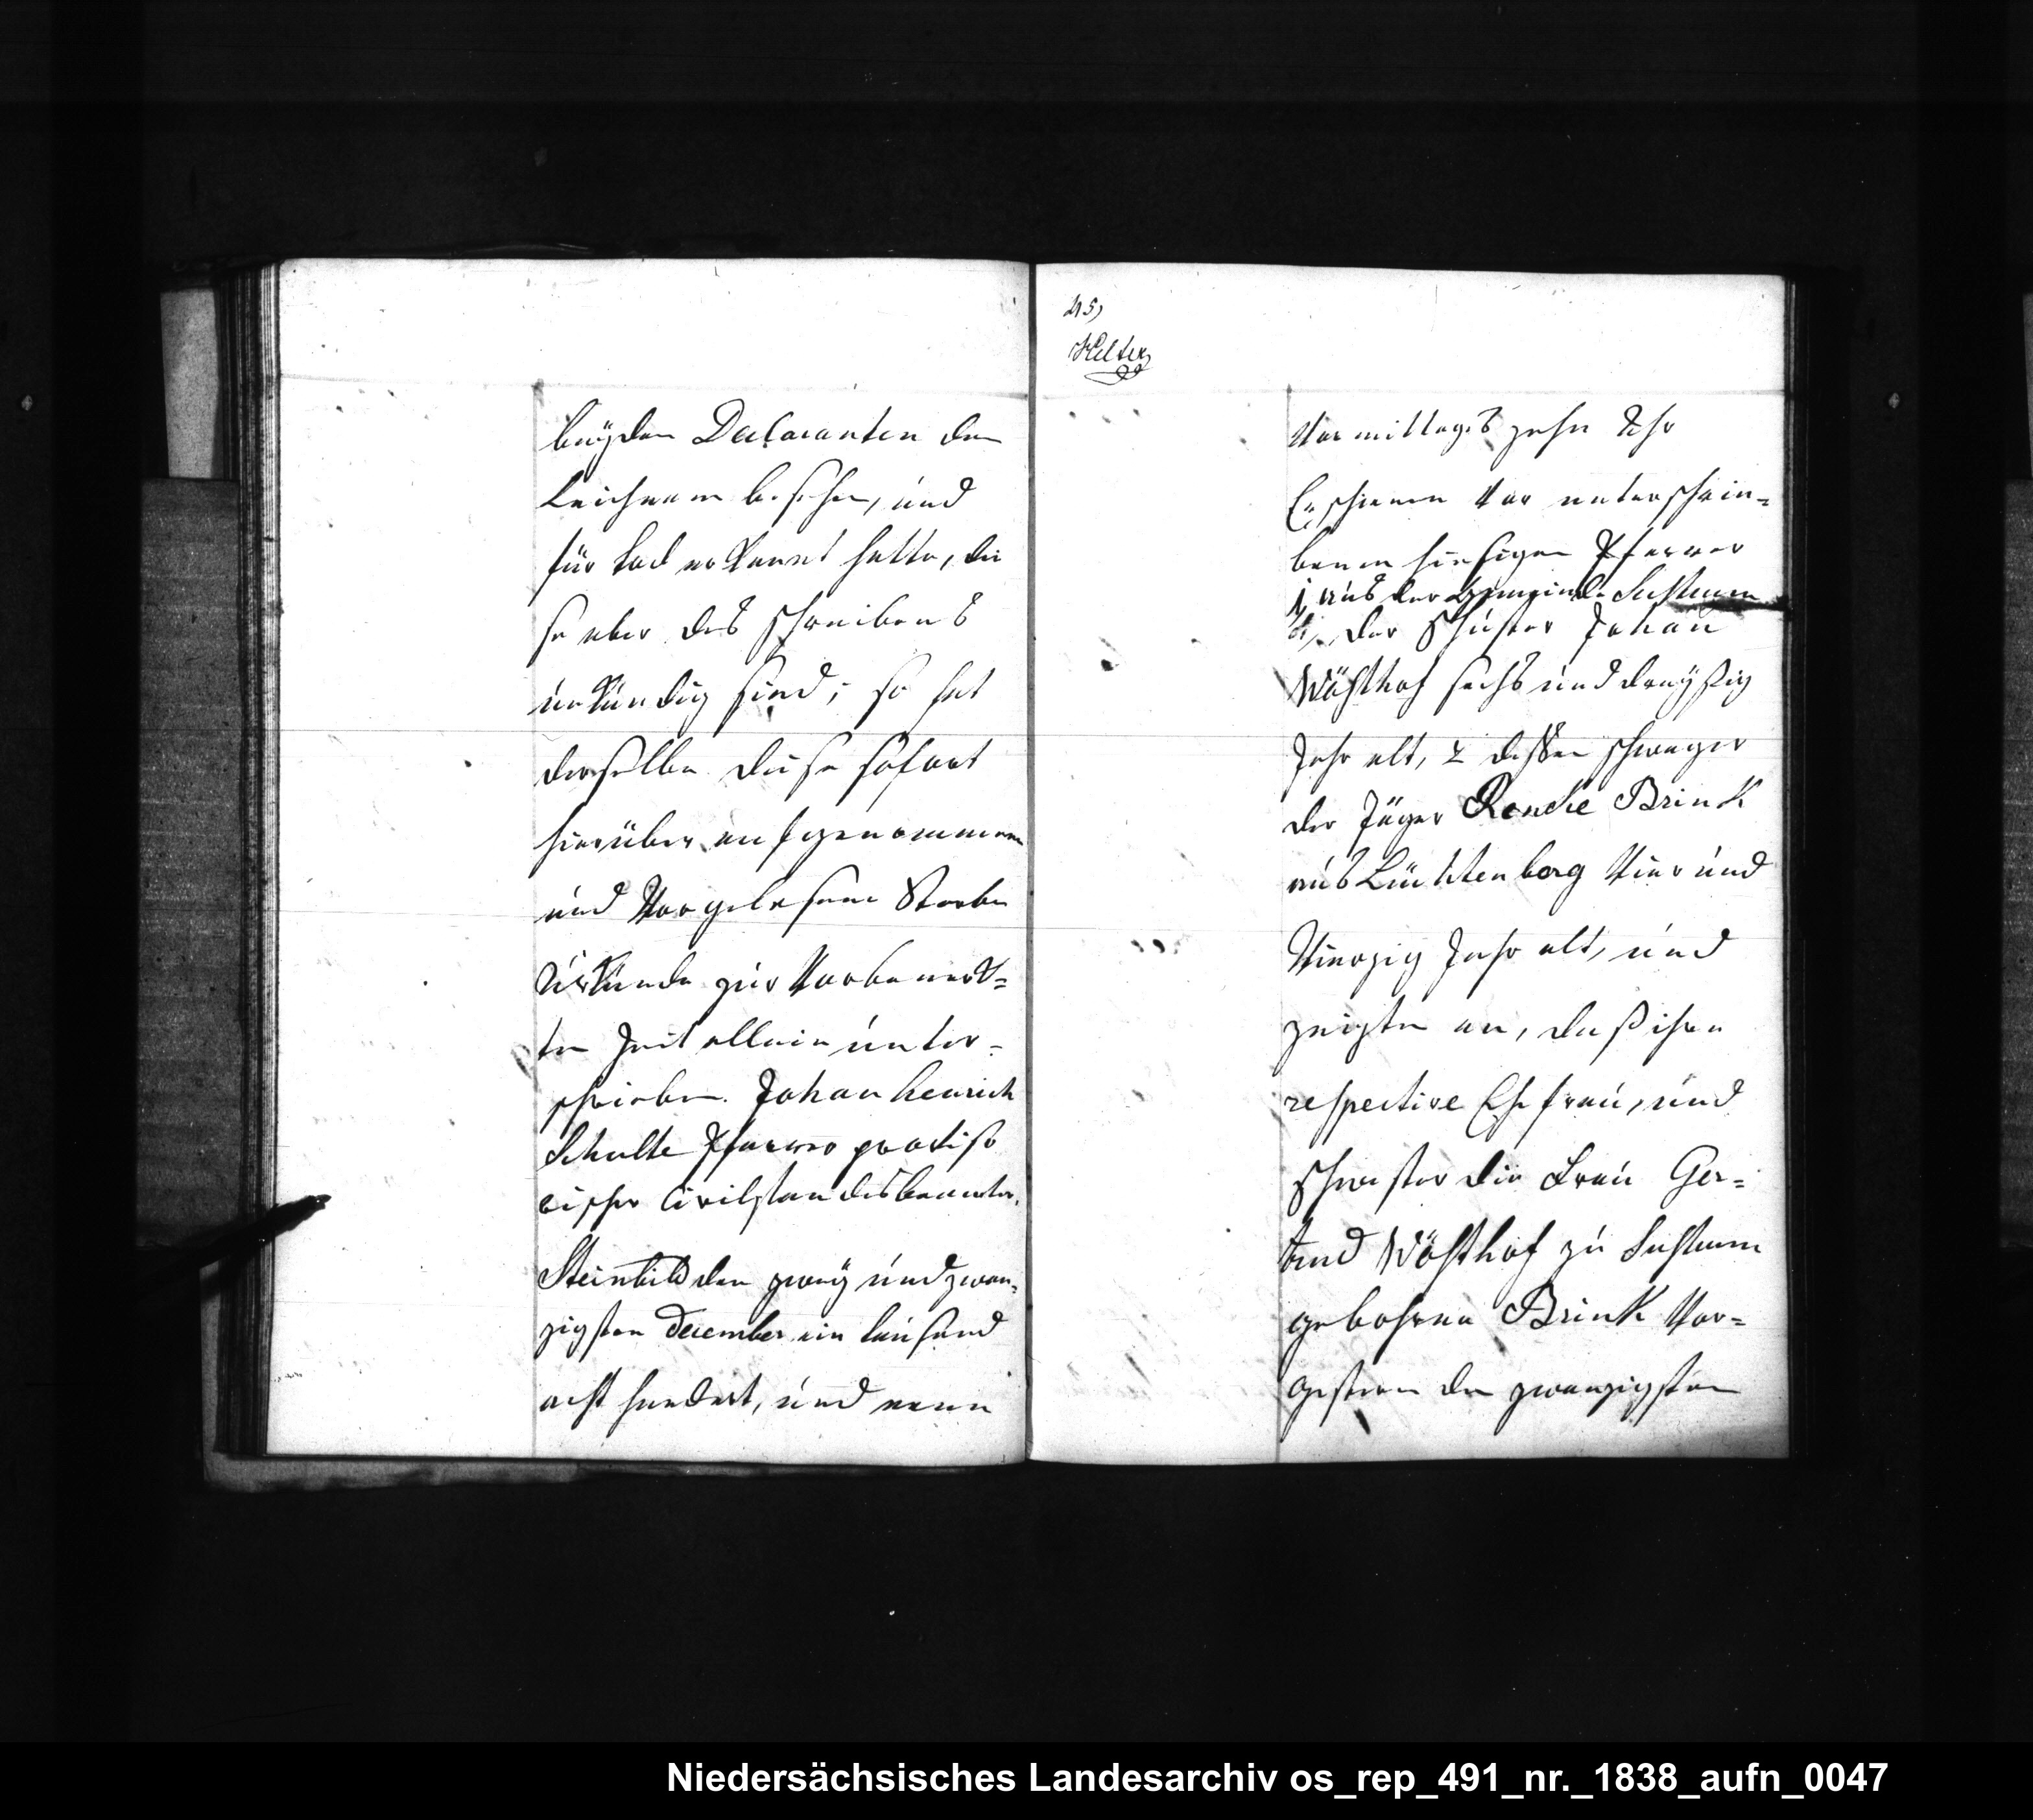 beÿden Declaranten den
Leichnam besehen, und
für tod erkannt hatte, die
se aber des schreibens
unkündig sind; so hat
derselbe diese sofort
hierüber aufgenommene
und Vorgelesene Sterbe
Urkunde zur Vorbemerk=
ten Zeit allein unter=
schrieben. Johan henrich
Schulte Pfarrer proviso
rischer Civilstandesbeamter.
Steinbild den zweÿ und zwan=
zigsten December ein tausend
acht hundert, und neun
45)
Kelter
Vormittags zehn Uhr
Erschienen vor unterschrie=
benen hiesigen Pfarrer
1, aus der Gemeinde Sustrum
der Schuster Johan
Wösthof sechs und dreÿßig
Jahr alt, 2 dessen schwager
der Jäger Rencke Brink
aus Lüchtenborg Vier und
Vierzig Jahr alt, und
zeigten an, daß ihre
respective Ehefrau, und
Schwester die Frau Ger=
trud Wösthof zu Sustrum
gebohrne Brink Vor=
gestern den zwanzigsten
Niedersächsisches Landesarchiv os_rep_491_nr._1838_aufn_0047